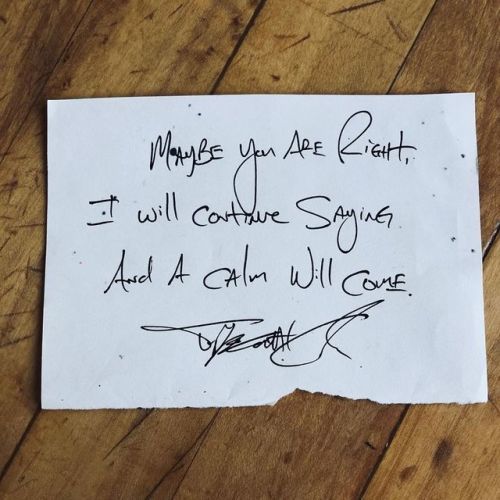 Maybe You Are Right,
I will continue Saying
And A CAlm Will Come.